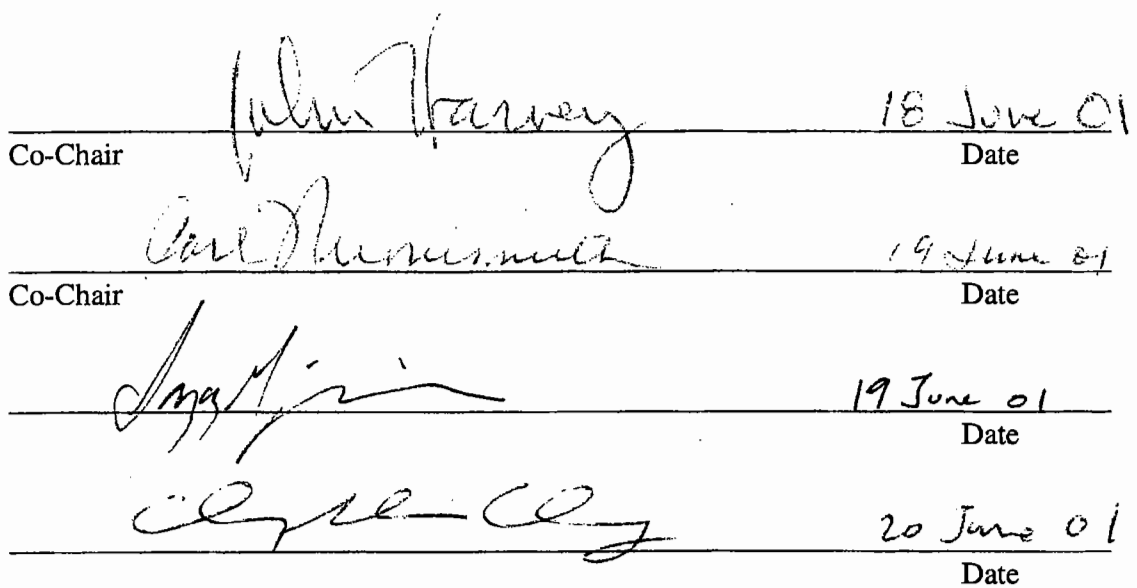 John Harvey 18 June 01
Co-Chair Date
Carl 19 June 01
Co-Chair Date
19 June 01
Date
20 June 01
Date